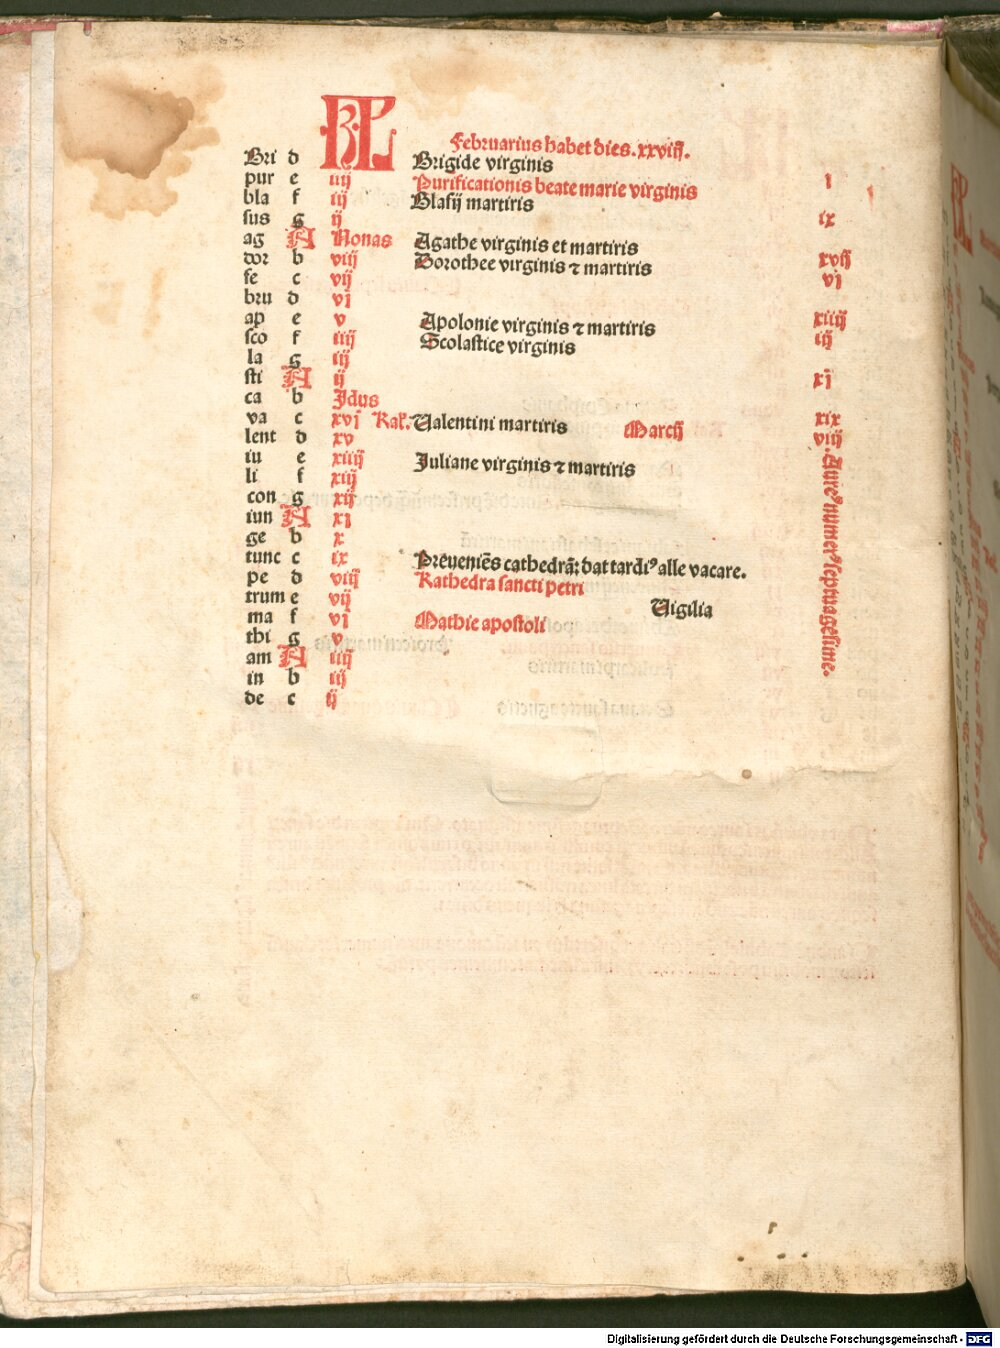 KL
Februarius habet dies. xxviij.
Bri d Brigide virginis
pur e iiij Purificationis beate marie virginis i
bla f iij Blasij martiris
sus g ij ix
ag A Nonas Agathe virginis et martiris
dor b viij Dorothee virginis ⁊ martiris xvij
fe c vij vi
bru d vi
ap e v Apolonie virginis ⁊ martiris xiiij
sco f iiij Scolastice virginis iij
la g iij
sti A ij xi
ca b Idus
va c xvi Kal. Valentini martiris Marcij xix
lent d xv viij
iu e xiiij Juliane virginis ⁊ martiris
li f xiij
con g xij
iun A xi
ge b x
tunc c ix Preueniēs cathedrā; dat tardiꝰ alle vacare.
pe d viij Kathedra sancti petri
trum e vij Vigilia
ma f vi Mathie apostoli
thi g v
am A iiij
in b iij
de c ij
Aureꝰ numerꝰ septuagesime.
Digitalisierung gefördert durch die Deutsche Forschungsgemeinschaft - DFG